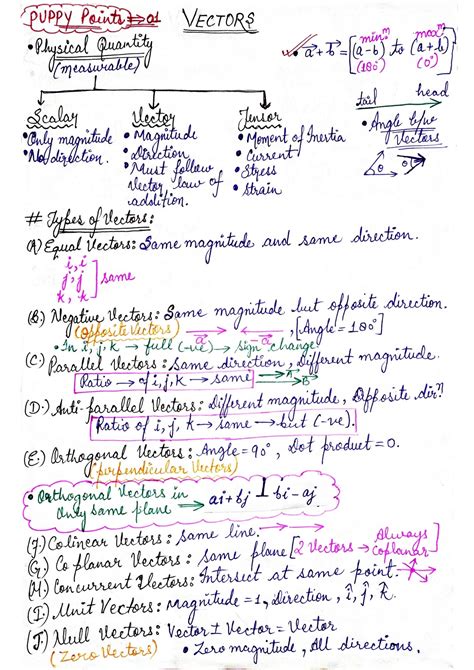 PUPPY Points ⇒ 01 VECTORS
• Physical Quantity
(measurable)
✓ • a⃗ + b⃗ = [(a-b) to (a+b)]
minᵐ maxᵐ
(180°) (0°)
Scalar
• Only magnitude
• No direction.
Vector
• Magnitude
• Direction
• Must follow
Vector law of
addition.
Tensor
• Moment of Inertia
• Current
• Stress
• Strain
tail head
• Angle b/w
Vectors
θ θ
# Types of Vectors:
(A) Equal Vectors: Same magnitude and same direction.
i, i
j, j ] same
k, k
(B.) Negative Vectors: Same magnitude but opposite direction.
(Opposite Vectors) a⃗ a⃗ , [Angle = 180°]
• In i, j, k → full (-ve) → sign change
(C.) Parallel Vectors: Same direction, Different magnitude.
Ratio → of i, j, k → same
(D.) Anti-parallel Vectors: Different magnitude, Opposite dirⁿ
Ratio of i, j, k → same → but (-ve).
(E.) Orthogonal Vectors: Angle = 90°, Dot product = 0.
(perpendicular Vectors)
• Orthogonal Vectors in
Only same plane → ai+bj ⊥ bi-aj
(F.) Colinear Vectors: Same line.
(G.) Co planar Vectors: Same plane [2 Vectors → Always
Coplanar]
(H) Concurrent Vectors: Intersect at same point.
(I) Unit Vectors: Magnitude = 1, Direction, î, ĵ, k̂.
(J) Null Vectors: Vector ± Vector = Vector
(Zero Vectors) • Zero magnitude, All directions.